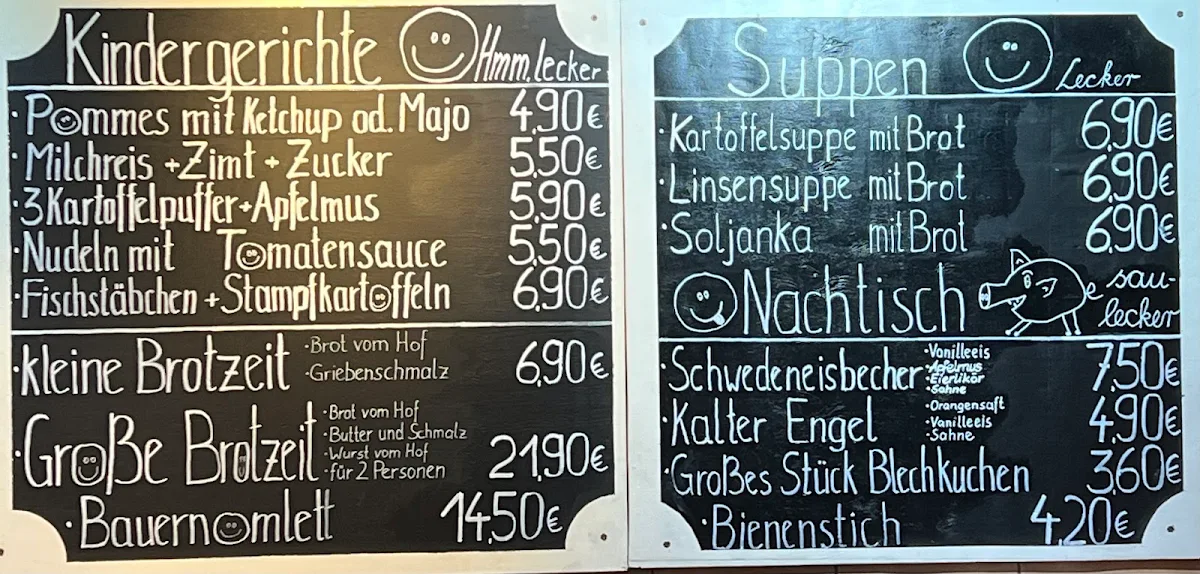 Kindergerichte Hmm, lecker
· Pommes mit Ketchup od. Majo 4,90€
· Milchreis + Zimt + Zucker 5,50€
· 3 Kartoffelpuffer + Apfelmus 5,90€
· Nudeln mit Tomatensauce 5,50€
· Fischstäbchen + Stampfkartoffeln 6,90€
· kleine Brotzeit 6,90€
· Brot vom Hof
· Griebenschmalz
· Große Brotzeit 21,90€
· Brot vom Hof
· Butter und Schmalz
· Wurst vom Hof
· für 2 Personen
· Bauernomlett 14,50€
Suppen Lecker
· Kartoffelsuppe mit Brot 6,90€
· Linsensuppe mit Brot 6,90€
· Soljanka mit Brot 6,90€
Nachtisch sau-
lecker
· Schwedeneisbecher 7,50€
· Vanilleeis
· Apfelmus
· Eierlikör
· Sahne
· Kalter Engel 4,90€
· Orangensaft
· Vanilleeis
· Sahne
· Großes Stück Blechkuchen 3,60€
· Bienenstich 4,20€